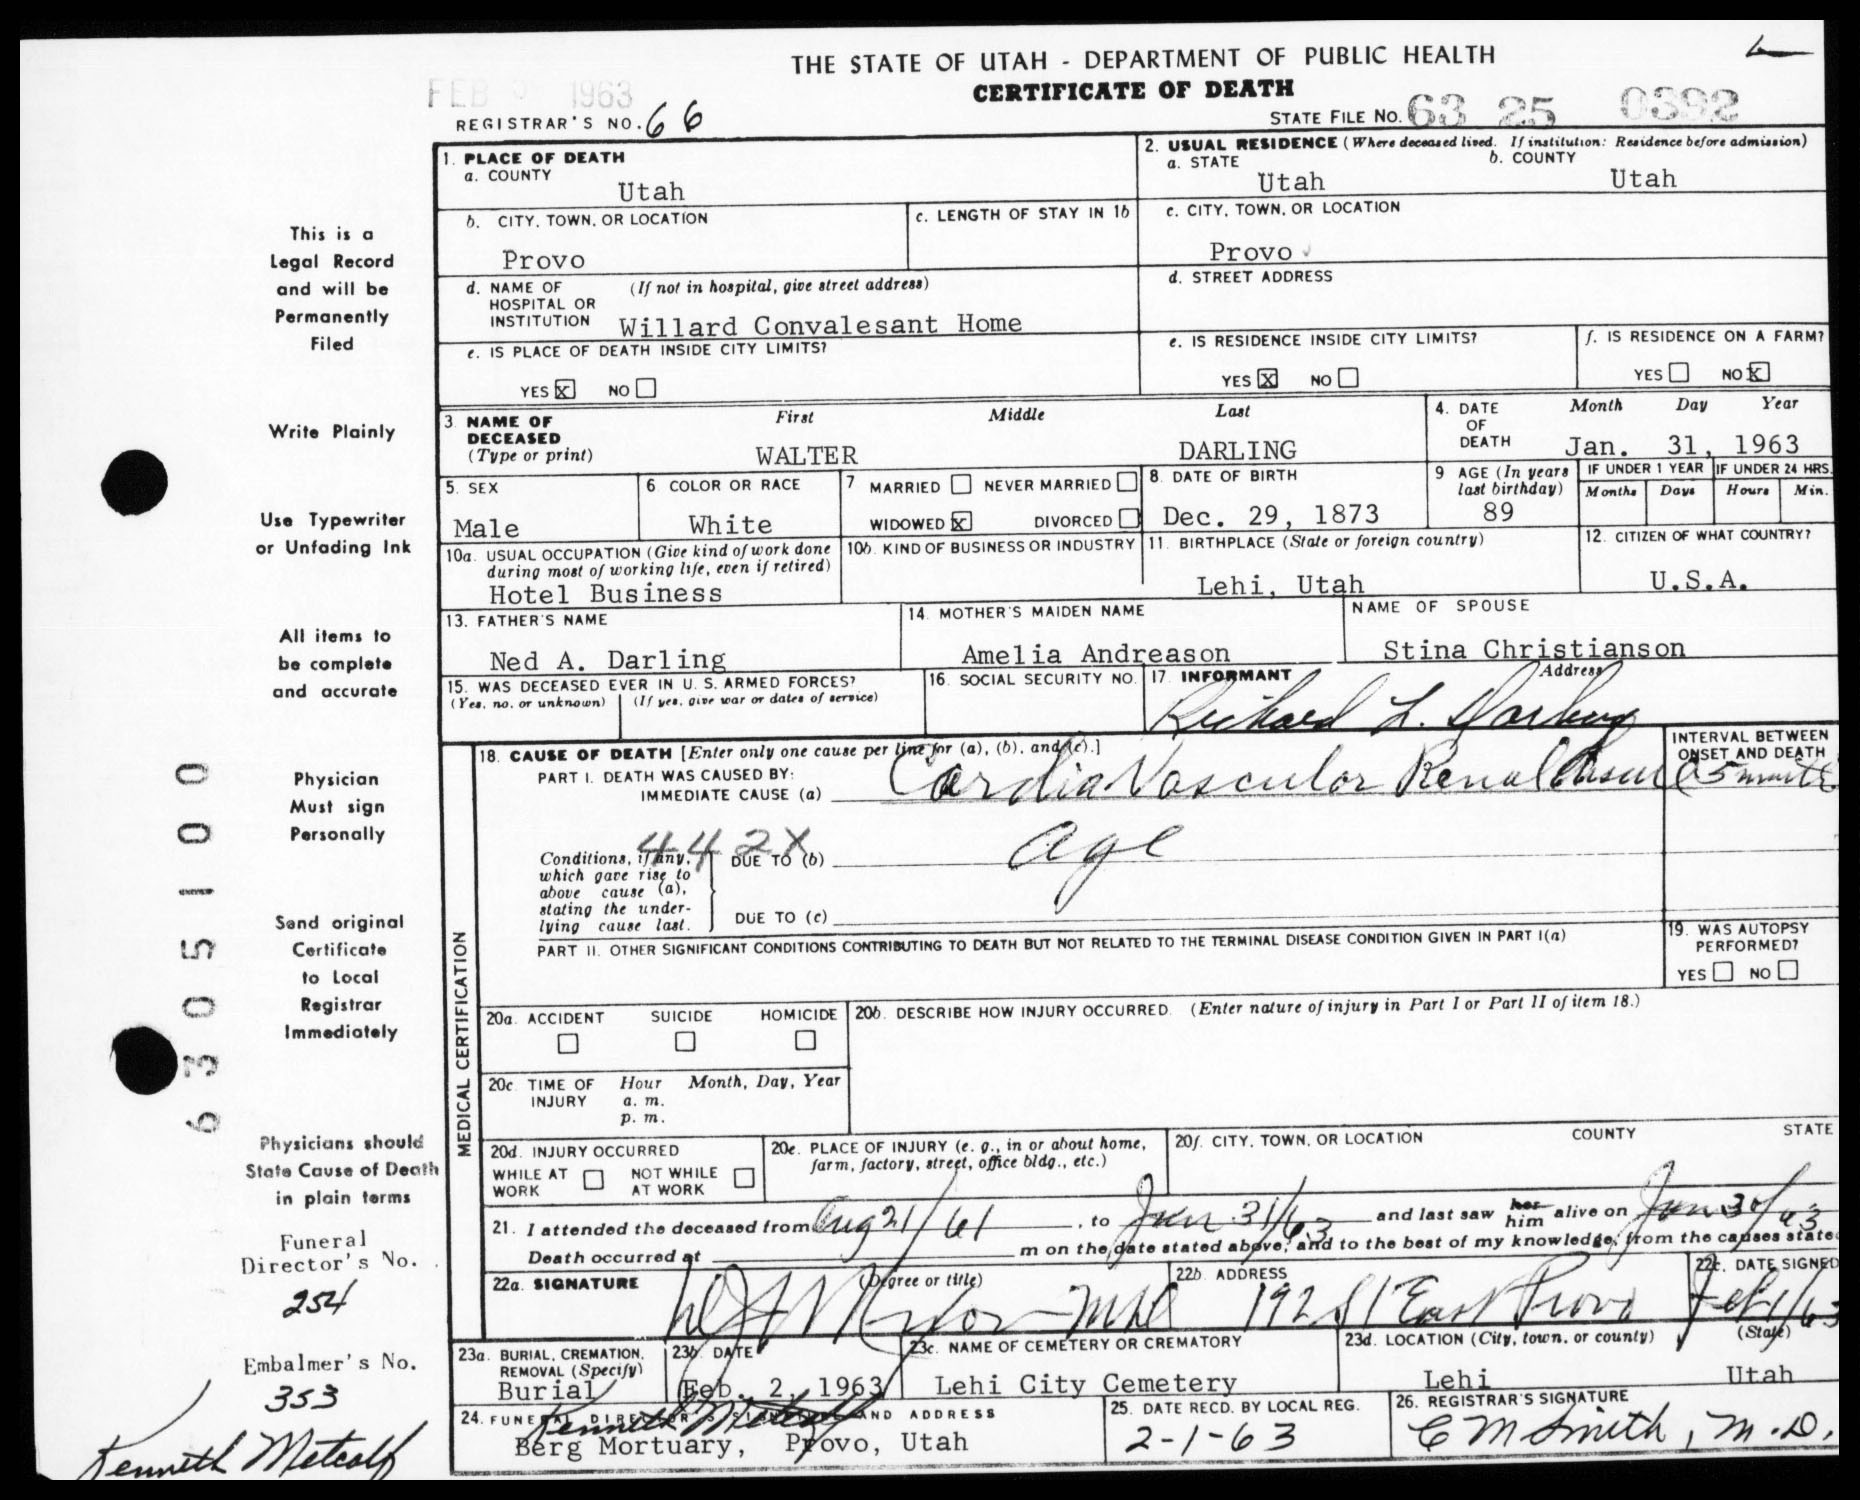 THE STATE OF UTAH - DEPARTMENT OF PUBLIC HEALTH
FEB 1963
CERTIFICATE OF DEATH
REGISTRAR'S NO. 66
STATE FILE NO. 63 25 0392
1. PLACE OF DEATH
a. COUNTY
Utah
2. USUAL RESIDENCE (Where deceased lived. If institution: Residence before admission)
a. STATE
Utah
b. COUNTY
Utah
b. CITY, TOWN, OR LOCATION
Provo
c. LENGTH OF STAY IN 1b
c. CITY, TOWN, OR LOCATION
Provo
d. NAME OF HOSPITAL OR INSTITUTION
(If not in hospital, give street address)
Willard Convalesant Home
d. STREET ADDRESS
e. IS PLACE OF DEATH INSIDE CITY LIMITS?
YES X NO
e. IS RESIDENCE INSIDE CITY LIMITS?
YES X NO
f. IS RESIDENCE ON A FARM?
YES NO X
3. NAME OF DECEASED (Type or print)
First Middle Last
WALTER DARLING
4. DATE OF DEATH
Month Day Year
Jan. 31, 1963
5. SEX
Male
6 COLOR OR RACE
White
7 MARRIED NEVER MARRIED
WIDOWED X DIVORCED
8. DATE OF BIRTH
Dec. 29, 1873
9 AGE (In years last birthday)
89
IF UNDER 1 YEAR
Months Days
IF UNDER 24 HRS.
Hours Min.
10a. USUAL OCCUPATION (Give kind of work done during most of working life, even if retired)
Hotel Business
10b. KIND OF BUSINESS OR INDUSTRY
11. BIRTHPLACE (State or foreign country)
Lehi, Utah
12. CITIZEN OF WHAT COUNTRY?
U.S.A.
13. FATHER'S NAME
Ned A. Darling
14. MOTHER'S MAIDEN NAME
Amelia Andreason
NAME OF SPOUSE
Stina Christianson
15. WAS DECEASED EVER IN U. S. ARMED FORCES?
(Yes, no, or unknown) (If yes, give war or dates of service)
16. SOCIAL SECURITY NO.
17. INFORMANT Address
Richard L. Darling
18. CAUSE OF DEATH [Enter only one cause per line for (a), (b), and (c).]
PART I. DEATH WAS CAUSED BY:
IMMEDIATE CAUSE (a) Cardio Vascular Renal
INTERVAL BETWEEN ONSET AND DEATH
442X
Conditions, if any, which gave rise to above cause (a), stating the underlying cause last.
DUE TO (b) age
DUE TO (c)
PART II. OTHER SIGNIFICANT CONDITIONS CONTRIBUTING TO DEATH BUT NOT RELATED TO THE TERMINAL DISEASE CONDITION GIVEN IN PART I(a)
19. WAS AUTOPSY PERFORMED?
YES NO
MEDICAL CERTIFICATION
20a. ACCIDENT SUICIDE HOMICIDE
20b. DESCRIBE HOW INJURY OCCURRED. (Enter nature of injury in Part I or Part II of item 18.)
20c. TIME OF INJURY
Hour Month, Day, Year
a. m.
p. m.
20d. INJURY OCCURRED
WHILE AT WORK NOT WHILE AT WORK
20e. PLACE OF INJURY (e. g., in or about home, farm, factory, street, office bldg., etc.)
20f. CITY, TOWN, OR LOCATION COUNTY STATE
21. I attended the deceased from Aug 21/61, to Jan 31/63 and last saw her him alive on Jan 30/63
Death occurred at m on the date stated above, and to the best of my knowledge, from the causes state
22a. SIGNATURE (Degree or title)
22b. ADDRESS
192 S 1 East Provo
22c. DATE SIGNED
Feb 1/63
23a. BURIAL, CREMATION, REMOVAL (Specify)
Burial
23b. DATE
Feb. 2, 1963
23c. NAME OF CEMETERY OR CREMATORY
Lehi City Cemetery
23d. LOCATION (City, town, or county) (State)
Lehi Utah
24. FUNERAL DIRECTOR'S SIGNATURE AND ADDRESS
Kenneth Metcalf
Berg Mortuary, Provo, Utah
25. DATE RECD. BY LOCAL REG.
2-1-63
26. REGISTRAR'S SIGNATURE
C M Smith, M.D.
This is a
Legal Record
and will be
Permanently
Filed
Write Plainly
Use Typewriter
or Unfading Ink
All items to
be complete
and accurate
Physician
Must sign
Personally
Send original
Certificate
to Local
Registrar
Immediately
Physicians should
State Cause of Death
in plain terms
Funeral
Director's No.
254
Embalmer's No.
353
Kenneth Metcalf
6305100